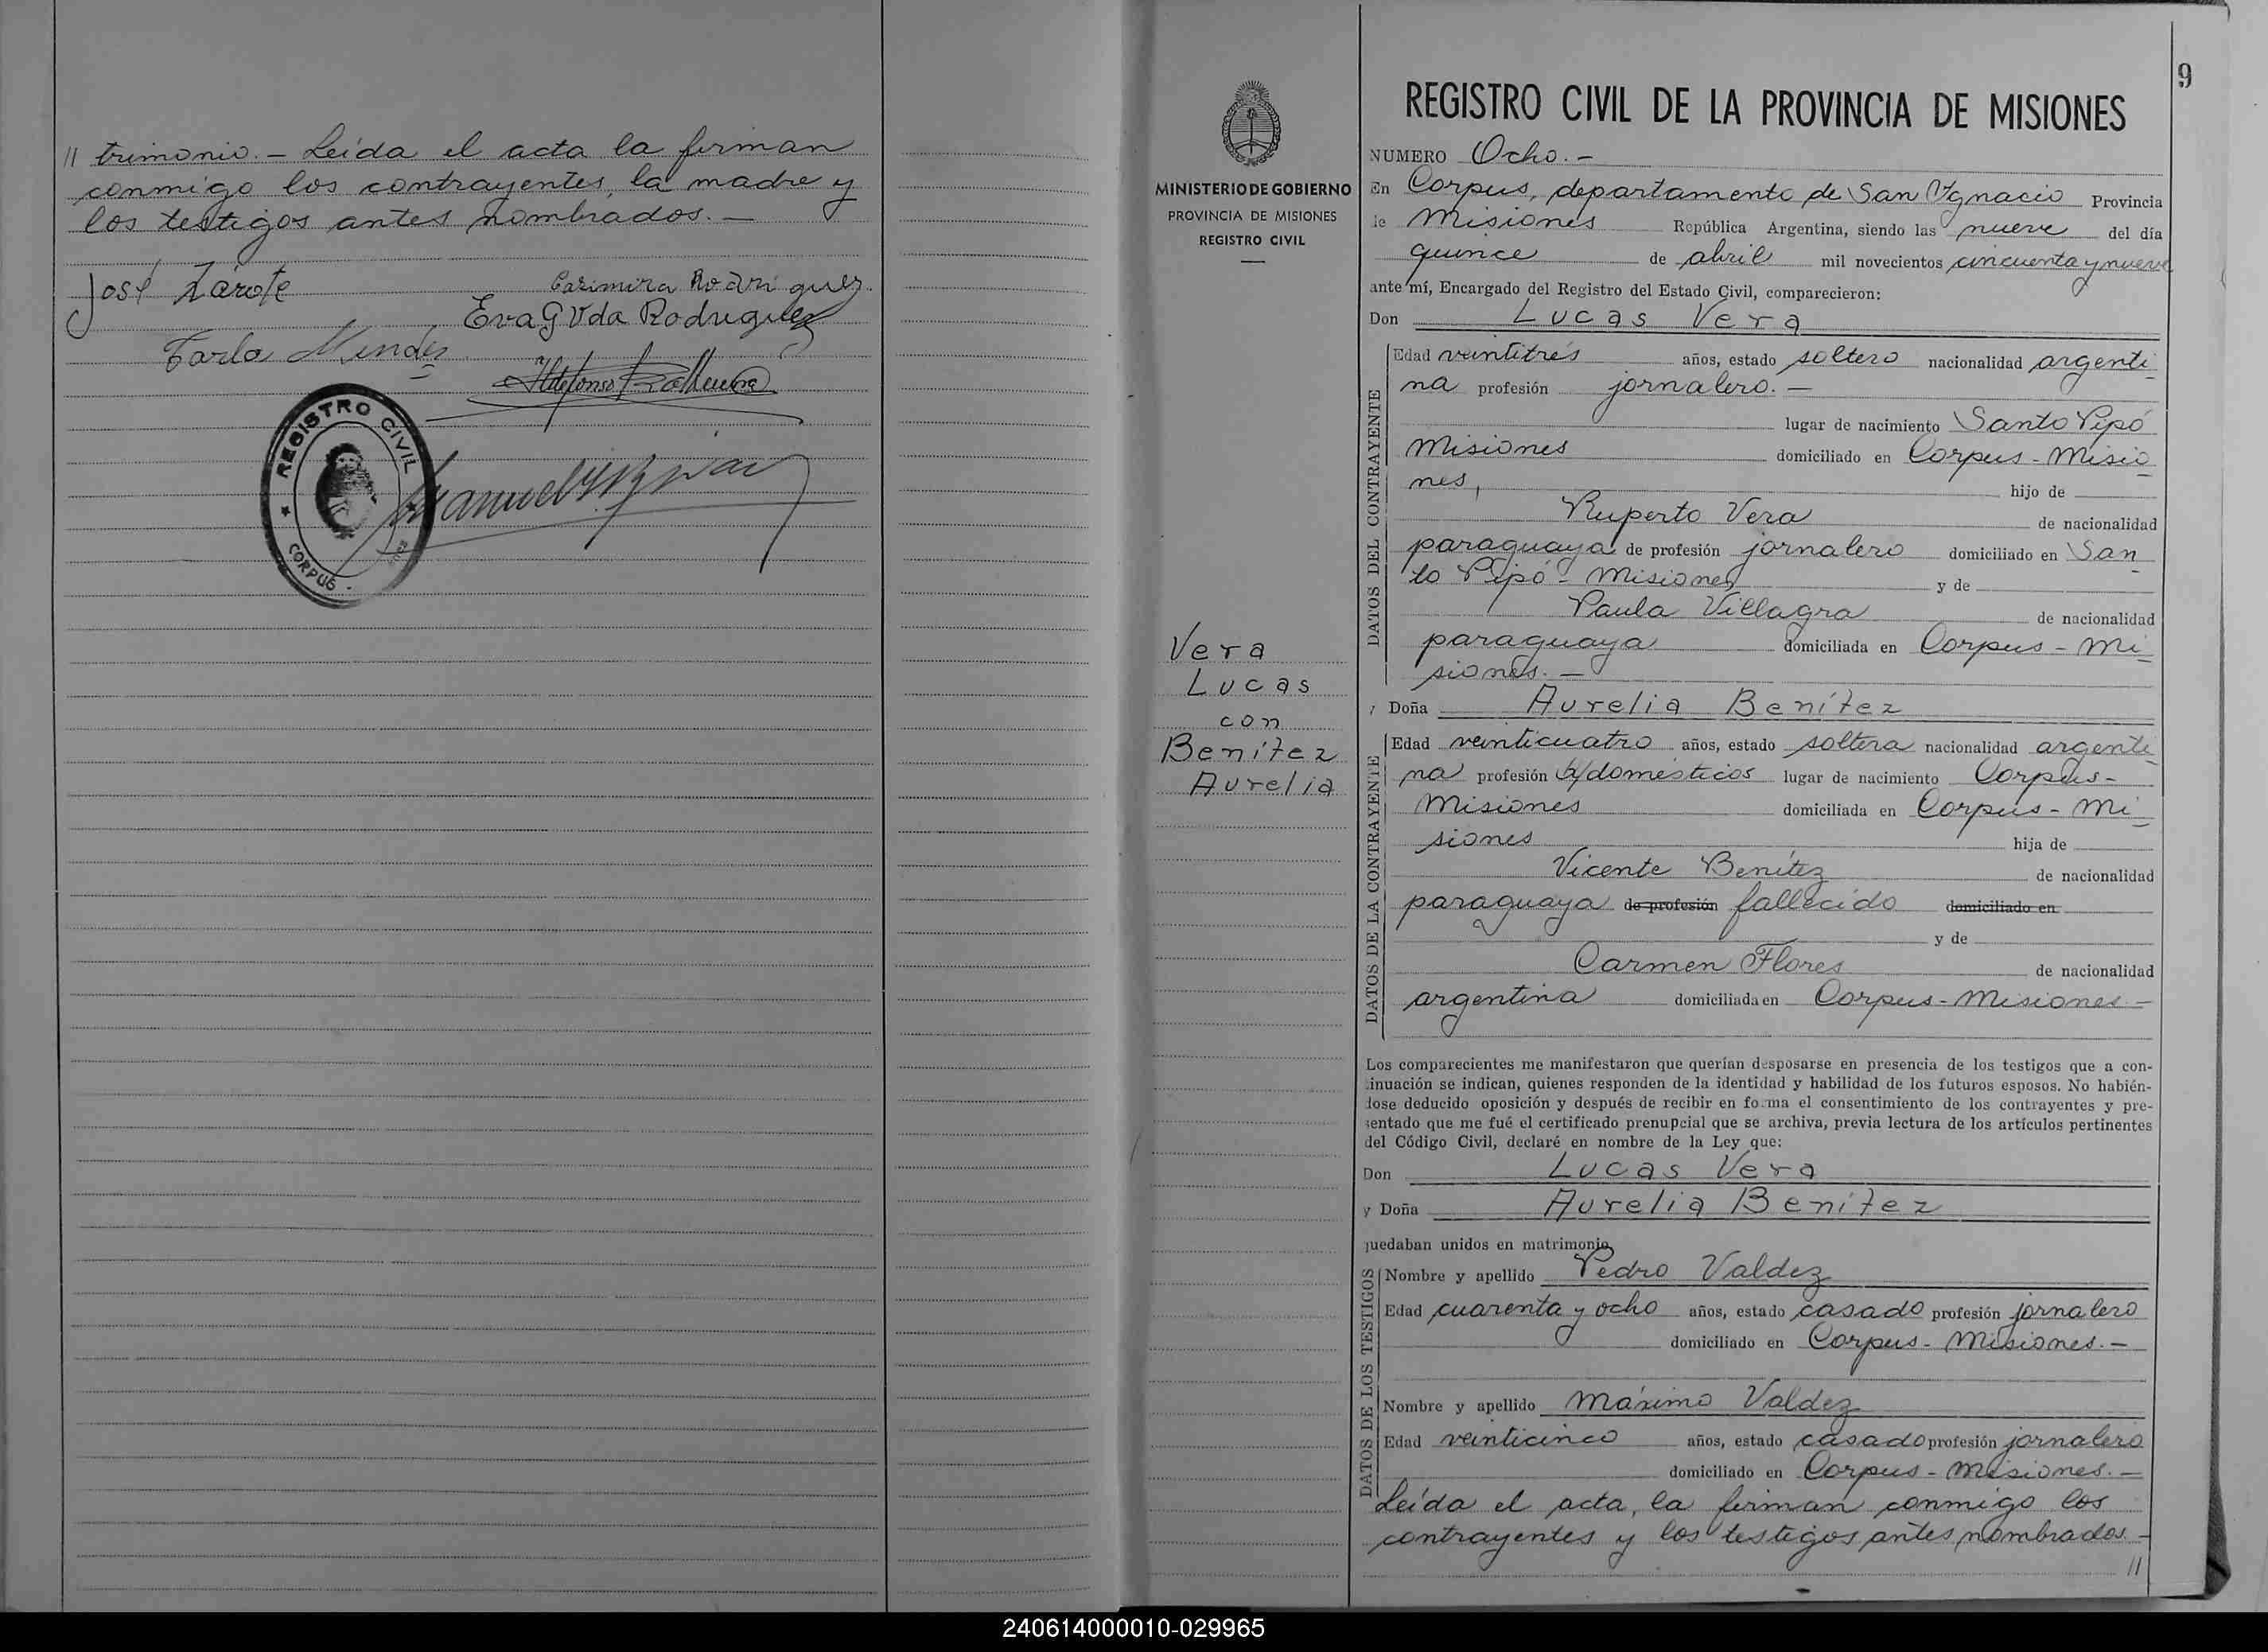 // trimonio. – Leída el acta la firman
conmigo los contrayentes, la madre y
los testigos antes nombrados. –
José Zárate
Casimira Rodriguez.
Eva G Vda Rodriguez
Carlos Mendez
Ildefonso
REGISTRO CIVIL
CORPUS
Manuel
9
MINISTERIO DE GOBIERNO
PROVINCIA DE MISIONES
REGISTRO CIVIL
Vera
Lucas
con
Benítez
Aurelia
REGISTRO CIVIL DE LA PROVINCIA DE MISIONES
NUMERO Ocho. –
En Corpus, departamento de San Ygnacio Provincia
de Misiones República Argentina, siendo las nueve del día
quince de abril mil novecientos cincuenta y nueve
ante mí, Encargado del Registro del Estado Civil, comparecieron:
Don Lucas Vera
DATOS DEL CONTRAYENTE
Edad veintitrés años, estado soltero nacionalidad argenti-
na profesión jornalero. –
lugar de nacimiento Santo Pipó
Misiones domiciliado en Corpus - Misio-
nes, hijo de
Ruperto Vera de nacionalidad
paraguaya de profesión jornalero domiciliado en San-
to Pipó - Misiones y de
Paula Villagra de nacionalidad
paraguaya domiciliada en Corpus - Mi-
siones. –
y Doña Aurelia Benítez
DATOS DE LA CONTRAYENTE
Edad veinticuatro años, estado soltera nacionalidad argenti-
na profesión q/domésticos lugar de nacimiento Corpus -
Misiones domiciliada en Corpus - Mi-
siones hija de
Vicente Benítez de nacionalidad
paraguaya de profesión fallecido domiciliado en
y de
Carmen Flores de nacionalidad
argentina domiciliada en Corpus - Misiones –
Los comparecientes me manifestaron que querían desposarse en presencia de los testigos que a con-
tinuación se indican, quienes responden de la identidad y habilidad de los futuros esposos. No habién-
dose deducido oposición y después de recibir en forma el consentimiento de los contrayentes y pre-
sentado que me fué el certificado prenupcial que se archiva, previa lectura de los artículos pertinentes
del Código Civil, declaré en nombre de la Ley que:
Don Lucas Vera
y Doña Aurelia Benítez
quedaban unidos en matrimonio
DATOS DE LOS TESTIGOS
Nombre y apellido Pedro Valdez
Edad cuarenta y ocho años, estado casado profesión jornalero
domiciliado en Corpus - Misiones. –
Nombre y apellido Máximo Valdez
Edad veinticinco años, estado casado profesión jornalero
domiciliado en Corpus - Misiones. –
Leída el acta, la firman conmigo los
contrayentes y los testigos antes nombrados. –
//
240614000010-029965